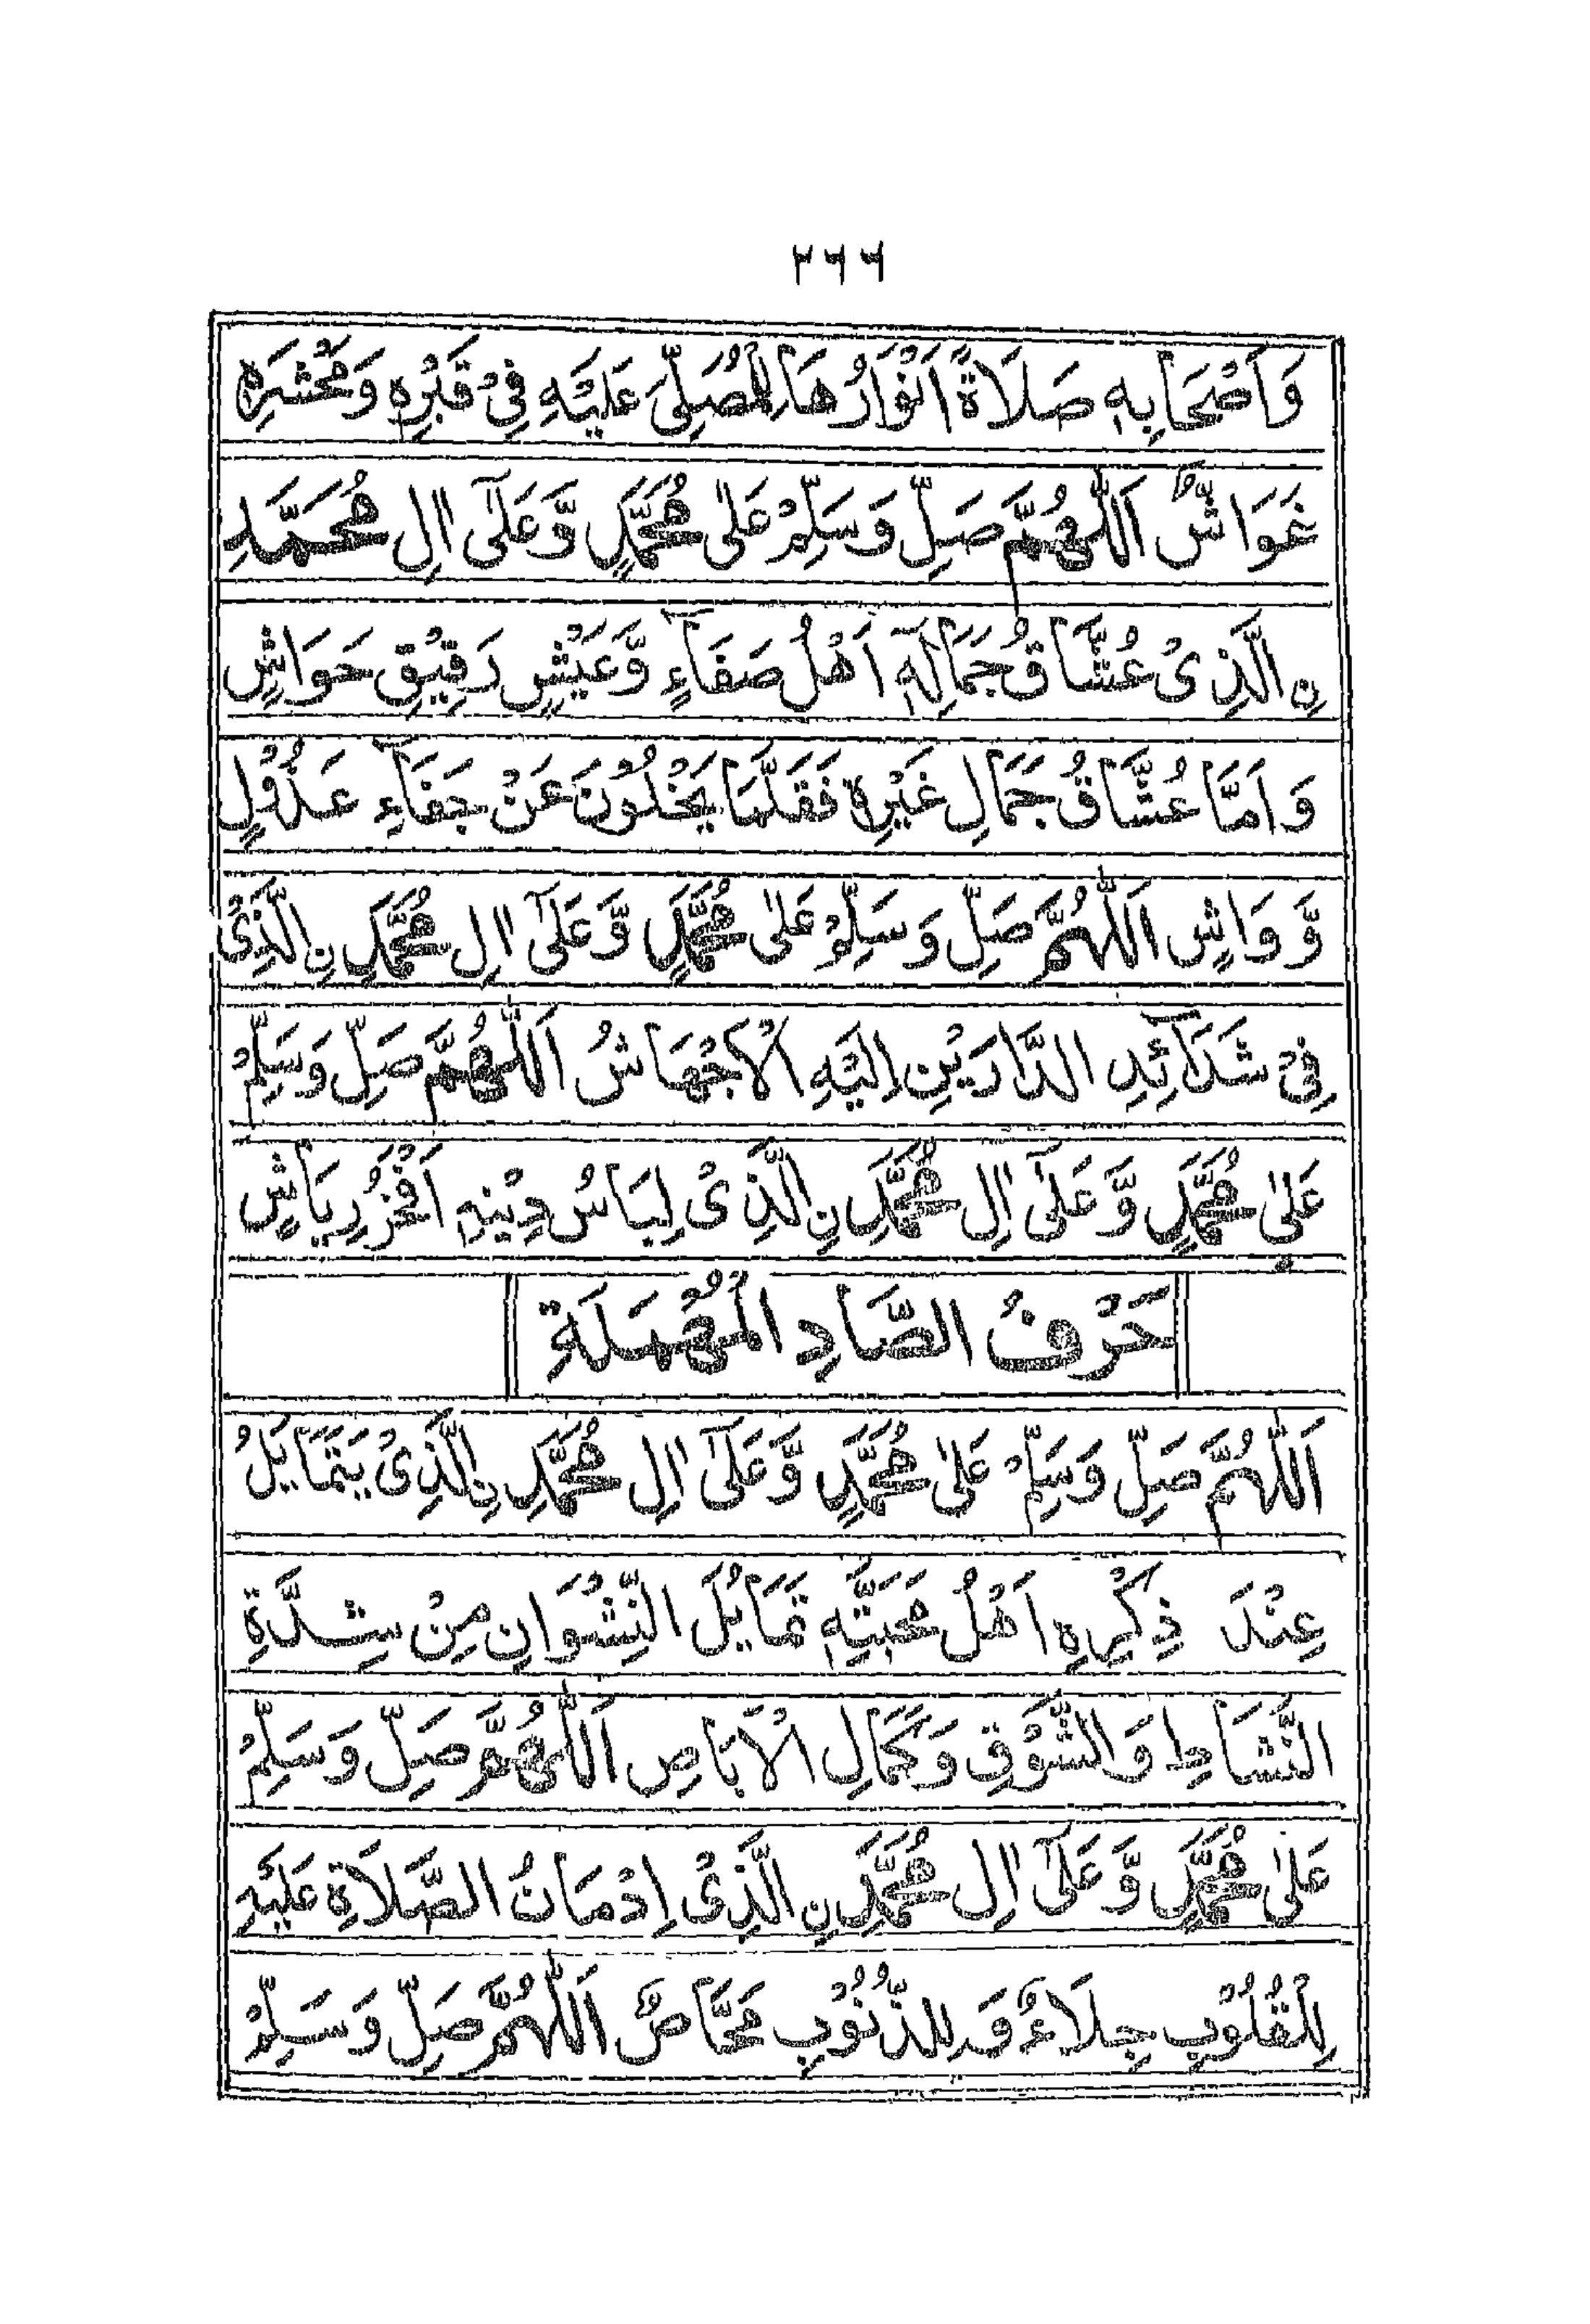 ٢٦٦
وَاَصْحَابِهٖ صَلَاةً اَنْوَارُهَا لِلْمُصَلِّیْ عَلَيْهِ فِیْ قَبْرِهٖ وَمَحْشَرِهٖ
غَوَاشٌ اَللّٰهُمَّ صَلِّ وَسَلِّمْ عَلٰی مُحَمَّدٍ وَّعَلٰۤی اٰلِ مُحَمَّدِ
نِ الَّذِیْ عُشَّاقُ جَمَالِهٖۤ اَهْلُ صَفَآءٍ وَّعَيْشٍ رَقِيْقِ حَوَاشٍ
وَاَمَّا عُشَّاقُ جَمَالِ غَيْرِهٖ فَقَلَّمَا يَخْلُوْنَ عَنْ جَفَآءِ عَذُوْلٍ
وَّوَاشٍ اَللّٰهُمَّ صَلِّ وَسَلِّمْ عَلٰی مُحَمَّدٍ وَّعَلٰۤی اٰلِ مُحَمَّدِ نِ الَّذِیْ
فِیْ شَدَآئِدِ الدَّارَيْنِ اِلَيْهِ الْاِجْهَاشُ اَللّٰهُمَّ صَلِّ وَسَلِّمْ
عَلٰی مُحَمَّدٍ وَّعَلٰۤی اٰلِ مُحَمَّدِ نِ الَّذِیْ لِبَاسُ دِيْنِهٖۤ اَفْخَرُ رِيَاشٍ
حَرْفُ الصَّادِ الْمُهْمَلَةِ
اَللّٰهُمَّ صَلِّ وَسَلِّمْ عَلٰی مُحَمَّدٍ وَّعَلٰۤی اٰلِ مُحَمَّدِ نِ الَّذِیْ يَتَمَايَلُ
عِنْدَ ذِكْرِهٖ اَهْلُ مَحَبَّتِهٖ تَمَايُلَ النِّشْوَانِ مِنْ شِدَّةِ
النَّشَاطِ وَالشَّوْقِ وَكَمَالِ الْاَبَاصِ اَللّٰهُمَّ صَلِّ وَسَلِّمْ
عَلٰی مُحَمَّدٍ وَّعَلٰۤی اٰلِ مُحَمَّدِ نِ الَّذِیْ اِدْمَانُ الصَّلَاةِ عَلَيْهِ
لِلْقُلُوْبِ جِلَاءٌ وَلِلذُّنُوْبِ مَحَّاصٌ اَللّٰهُمَّ صَلِّ وَسَلِّمْ